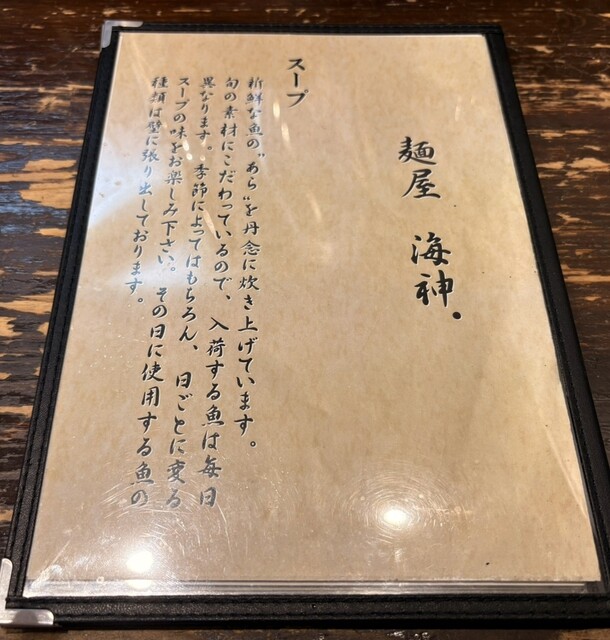 麺屋 海神.
スープ
新鮮な魚の"あら"を丹念に炊き上げています。
旬の素材にこだわっているので、入荷する魚は毎日
異なります。季節によってはもちろん、日ごとに変る
スープの味をお楽しみ下さい。その日に使用する魚の
種類は壁に張り出しております。